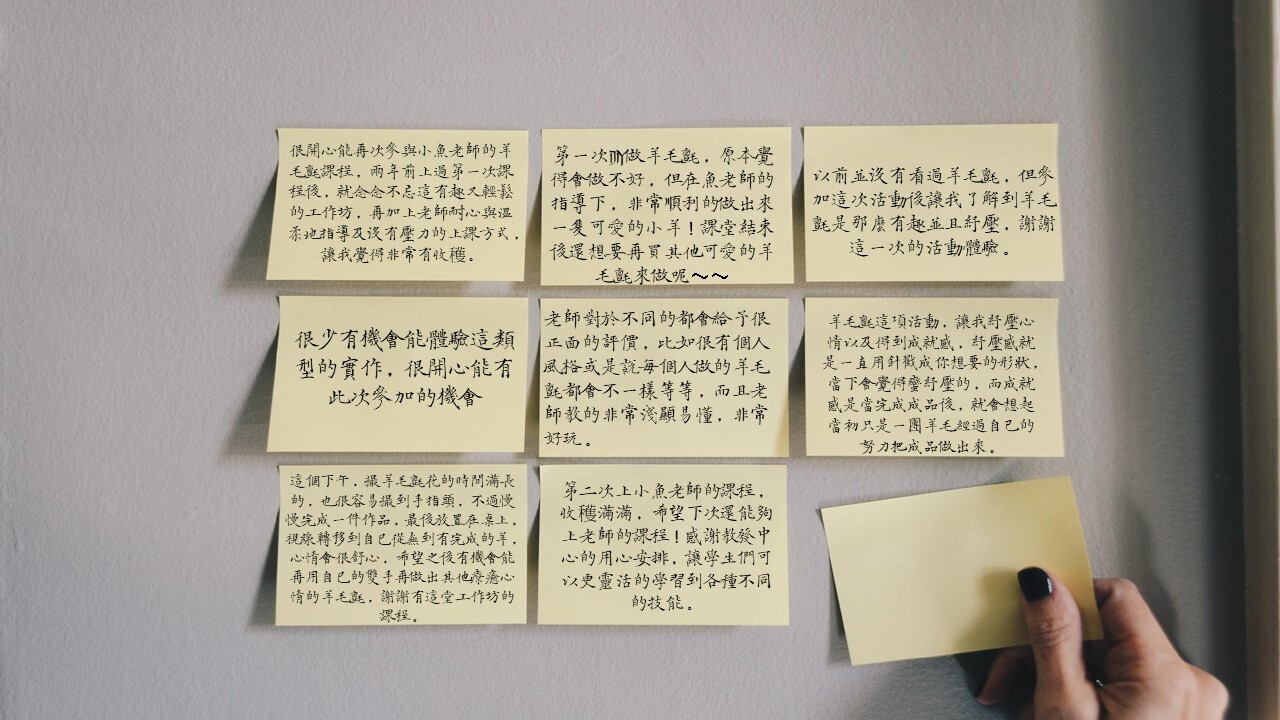 很開心能再次參與小魚老師的羊
毛氈課程，兩年前上過第一次課
程後，就念念不忘這有趣又輕鬆
的工作坊，再加上老師耐心與溫
柔地指導及沒有壓力的上課方式，
讓我覺得非常有收穫。
第一次做羊毛氈，原本覺
得會做不好，但在魚老師的
指導下，非常順利的做出來
一隻可愛的小羊！課堂結束
後還想要再買其他可愛的羊
毛氈來做呢～～
以前並沒有看過羊毛氈，但參
加這次活動後讓我了解到羊毛
氈是那麼有趣並且紓壓，謝謝
這一次的活動體驗。
很少有機會能體驗這類
型的實作，很開心能有
此次參加的機會
老師對於不同的都會給予很
正面的評價，比如很有個人
風格或是說每個人做的羊毛
氈都會不一樣等等，而且老
師教的非常淺顯易懂，非常
好玩。
羊毛氈這項活動，讓我紓壓心
情以及得到成就感，紓壓感就
是一直用針戳成你想要的形狀，
當下會覺得蠻紓壓的，而成就
感是當完成成品後，就會想起
當初只是一團羊毛經過自己的
努力把成品做出來。
這個下午，撮羊毛氈花的時間滿長
的，也很容易撮到手指頭，不過慢
慢完成一件作品，最後放置在桌上，
視線轉移到自己從無到有完成的羊，
心情會很舒心，希望之後有機會能
再用自己的雙手再做出其他療癒心
情的羊毛氈，謝謝有這堂工作坊的
課程。
第二次上小魚老師的課程，
收穫滿滿，希望下次還能夠
上老師的課程！感謝教發中
心的用心安排，讓學生們可
以更靈活的學習到各種不同
的技能。